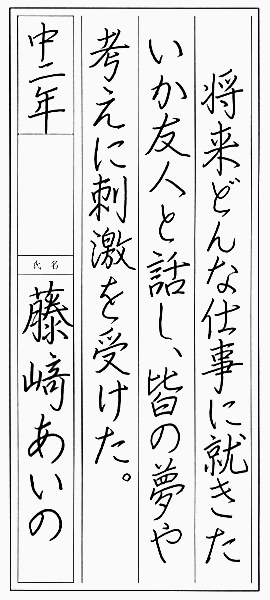 将来どんな仕事に就きた
いか友人と話し、皆の夢や
考えに刺激を受けた。
中二年
氏名
藤﨑あいの